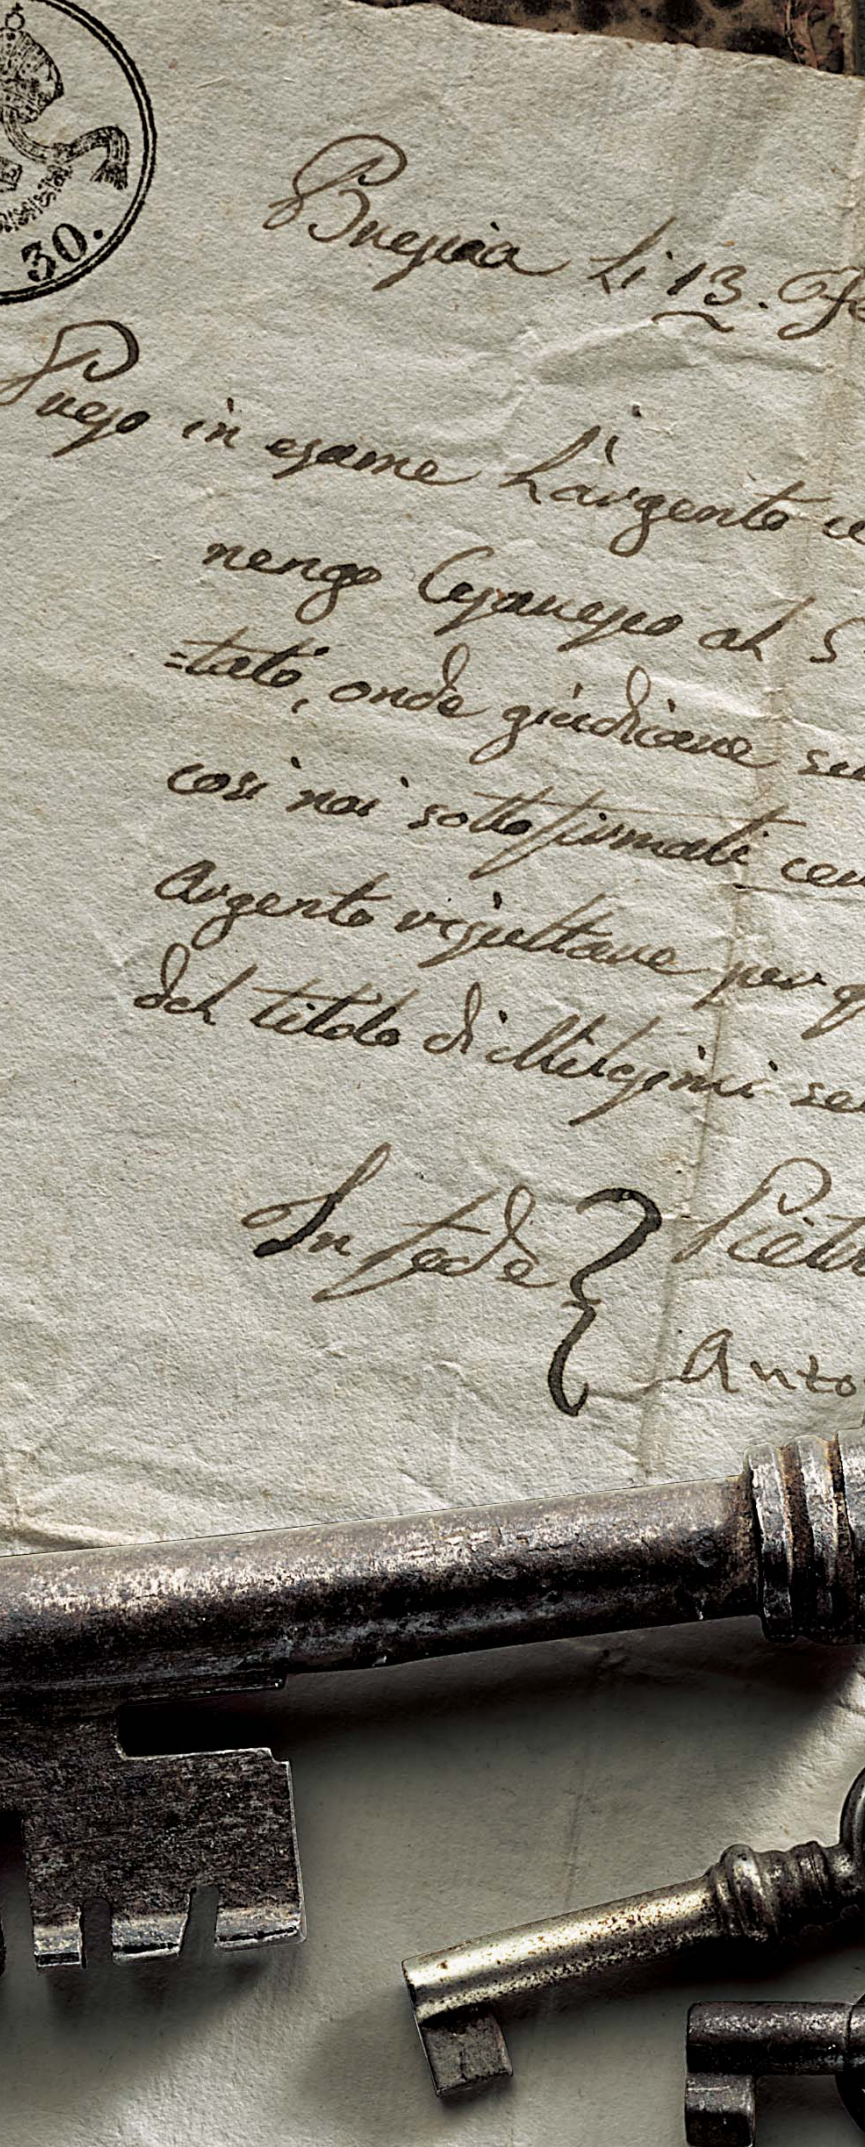 30.
Brescia li 13. Fe
Preso in esame l'argento
nengo Cesareo al 5
=tato, onde giudicare se
così noi sottofirmati cer
Argento risultare per q
del titolo di Milesimi se
In fede Pietr
Anto